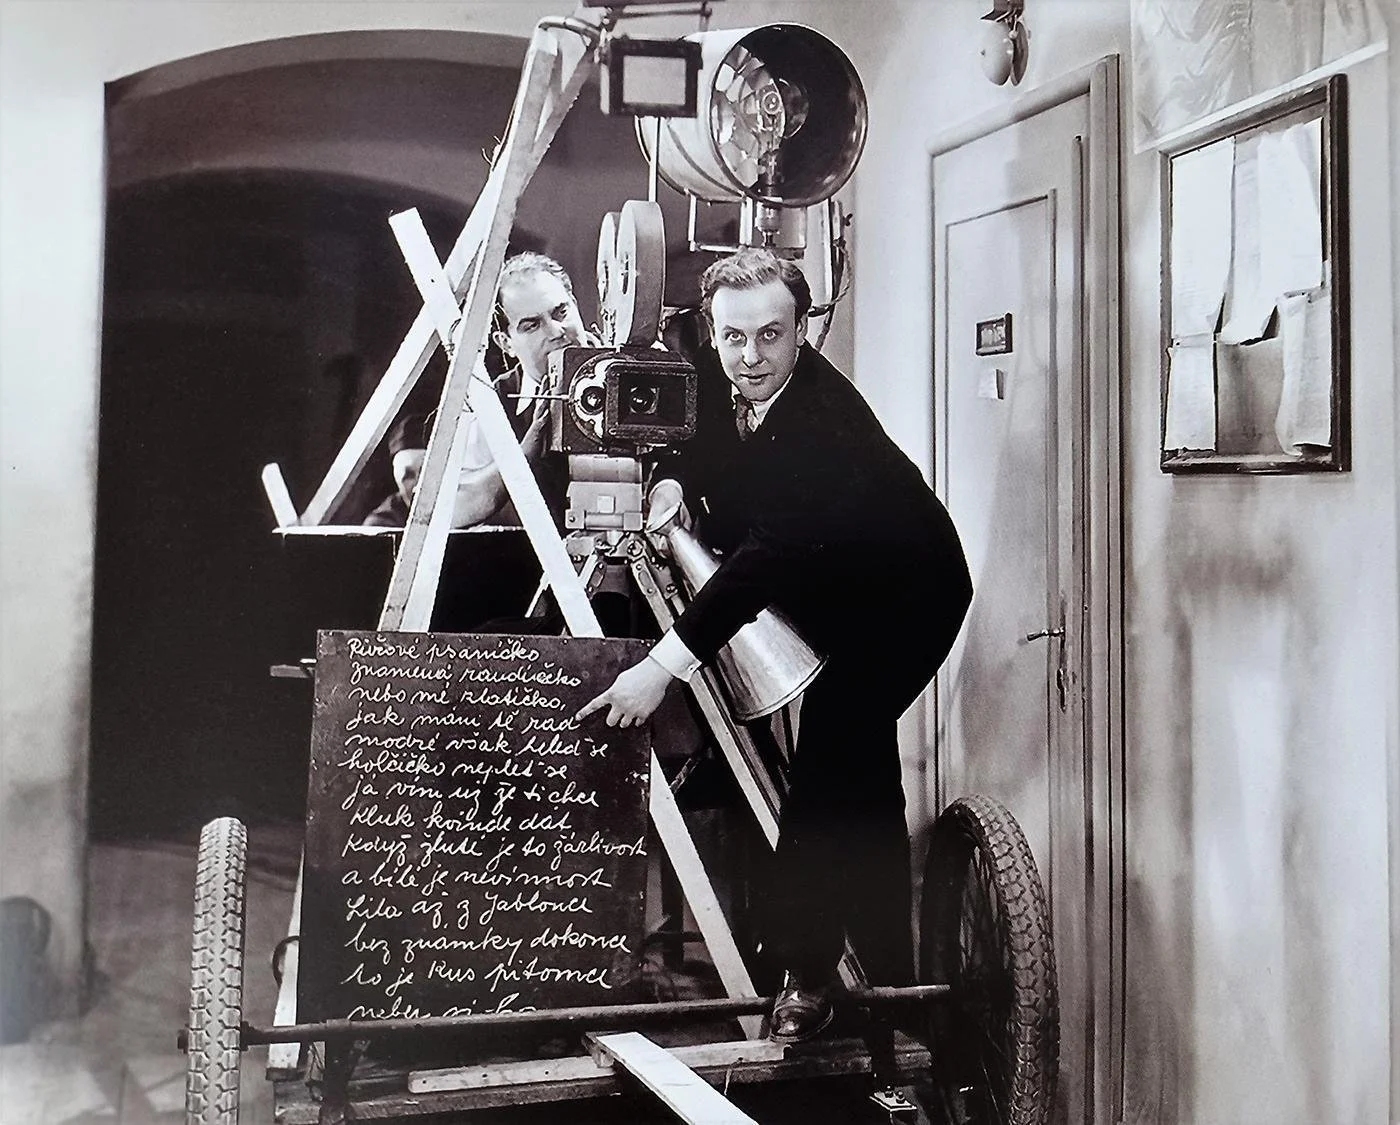 Růžové psaníčko
znamená randíčko
nebo mé zlatíčko,
jak mám tě rád
modré však hleď se
holčičko neplet se
já vím už že ti chce
kluk koinde dát
když žluté je to žárlivost
a bílé je nevinnost
Lila až z Jablonce
bez známky dokonce
to je kus pitomce
neber si ho